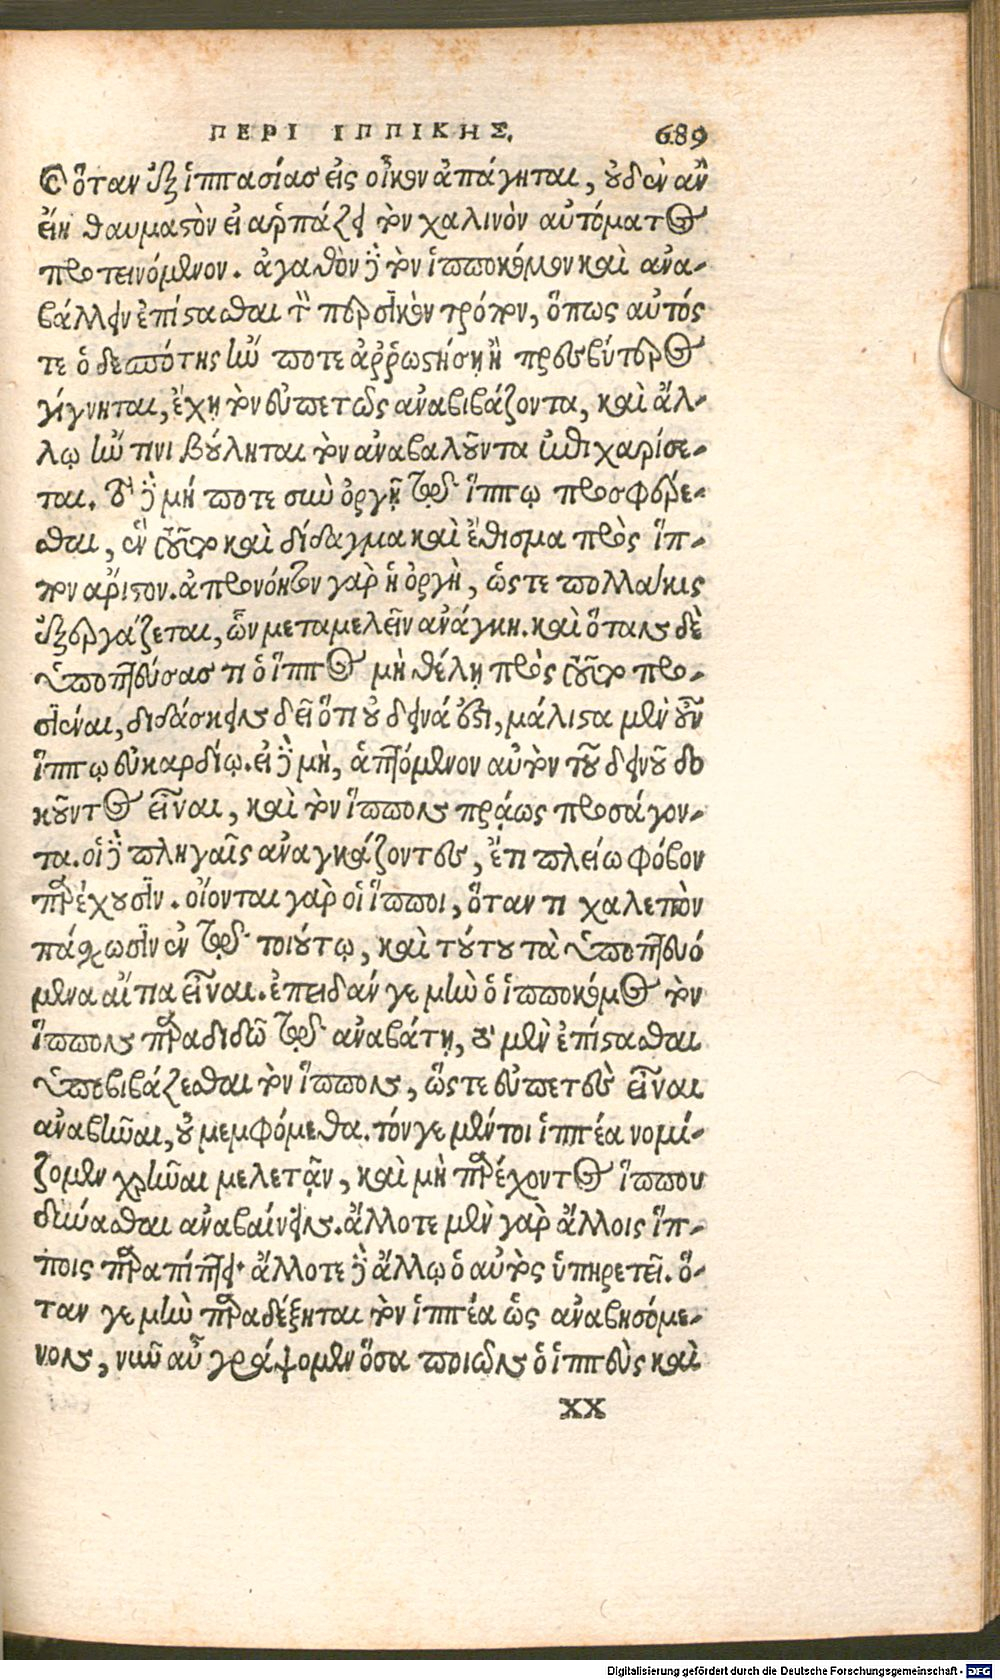 ΠΕΡΙ ΙΠΠΙΚΗΣ. 689
ὅταν ἐξ ἱππασίας εἰς οἶκον ἀπάγηται, οὐδὲν ἂν
εἴη θαυμαστὸν εἰ ἁρπάζῃ τὸν χαλινὸν αὐτόματος
προτεινόμενον. ἀγαθὸν δὲ τὸν ἱπποκόμον καὶ ἀνα-
βάλλειν ἐπίστασθαι τὸν περσικὸν τρόπον, ὅπως αὐτός
τε ὁ δεσπότης ἤν ποτε ἀῤῥωστήσῃ ἢ πρεσβύτερος
γίγνηται, ἔχῃ τὸν εὐπετῶς ἀναβιβάζοντα, καὶ ἄλ-
λῳ ἤν τινι βούληται τὸν ἀναβαλοῦντα ἐπιχαρίσε-
ται. τὸ δὲ μή ποτε σὺν ὀργῇ τῷ ἵππῳ προσφέρε-
σθαι, ἓν τοῦτο καὶ δίδαγμα καὶ ἔθισμα πρὸς ἵπ-
πον ἄριστον. ἀπρονόητον γὰρ ἡ ὀργὴ, ὥστε πολλάκις
ἐξεργάζεται, ὧν μεταμελεῖν ἀνάγκη. καὶ ὅταν δὲ
ὑποπτεύσας τι ὁ ἵππος μὴ θέλῃ πρὸς τοῦτο προ-
σιέναι, διδάσκειν δεῖ ὅτι οὐ δεινά ἐστι, μάλιστα μὲν οὖν
ἵππῳ εὐκαρδίῳ. εἰ δὲ μὴ, ἁπτόμενον αὐτὸν τοῦ δεινοῦ δο
κοῦντος εἶναι, καὶ τὸν ἵππον πρᾴως προσάγον-
τα. οἱ δὲ πληγαῖς ἀναγκάζοντες, ἔτι πλείω φόβον
παρέχουσιν. οἴονται γὰρ οἱ ἵπποι, ὅταν τι χαλεπὸν
πάσχωσιν ἐν τῷ τοιούτῳ, καὶ τούτου τὰ ὑποπτευό
μενα αἴτια εἶναι. ἐπειδάν γε μὴν ὁ ἱπποκόμος τὸν
ἵππον παραδιδῷ τῷ ἀναβάτῃ, τὸ μὲν ἐπίστασθαι
ὑποβιβάζεσθαι τὸν ἵππον, ὥστε εὐπετὲς εἶναι
ἀναβῆναι, οὐ μεμφόμεθα. τόν γε μέντοι ἱππέα νομί-
ζομεν χρῆναι μελετᾷν, καὶ μὴ παρέχοντος ἵππου
δύνασθαι ἀναβαίνειν. ἄλλοτε μὲν γὰρ ἄλλοις ἵπ-
ποις παραπίπτει· ἄλλοτε δὲ ἄλλῳ ὁ αὐτὸς ὑπηρετεῖ. ὅ-
ταν γε μὴν παραδέξηται τὸν ἱππέα ὡς ἀναβησόμε-
νον, νῦν αὖ γράψομεν ὅσα ποιῶν ὁ ἱππεὺς καὶ
XX
Digitalisierung gefördert durch die Deutsche Forschungsgemeinschaft - DFG